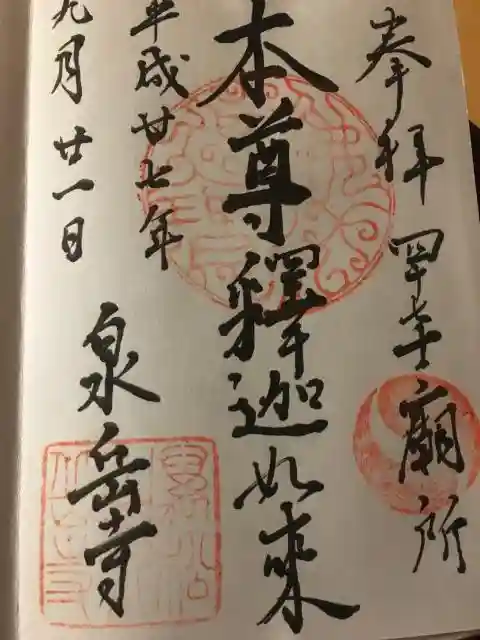 奉拝 四十七士廟所
本尊釋迦如來
平成廿七年
九月廿一日
泉岳寺